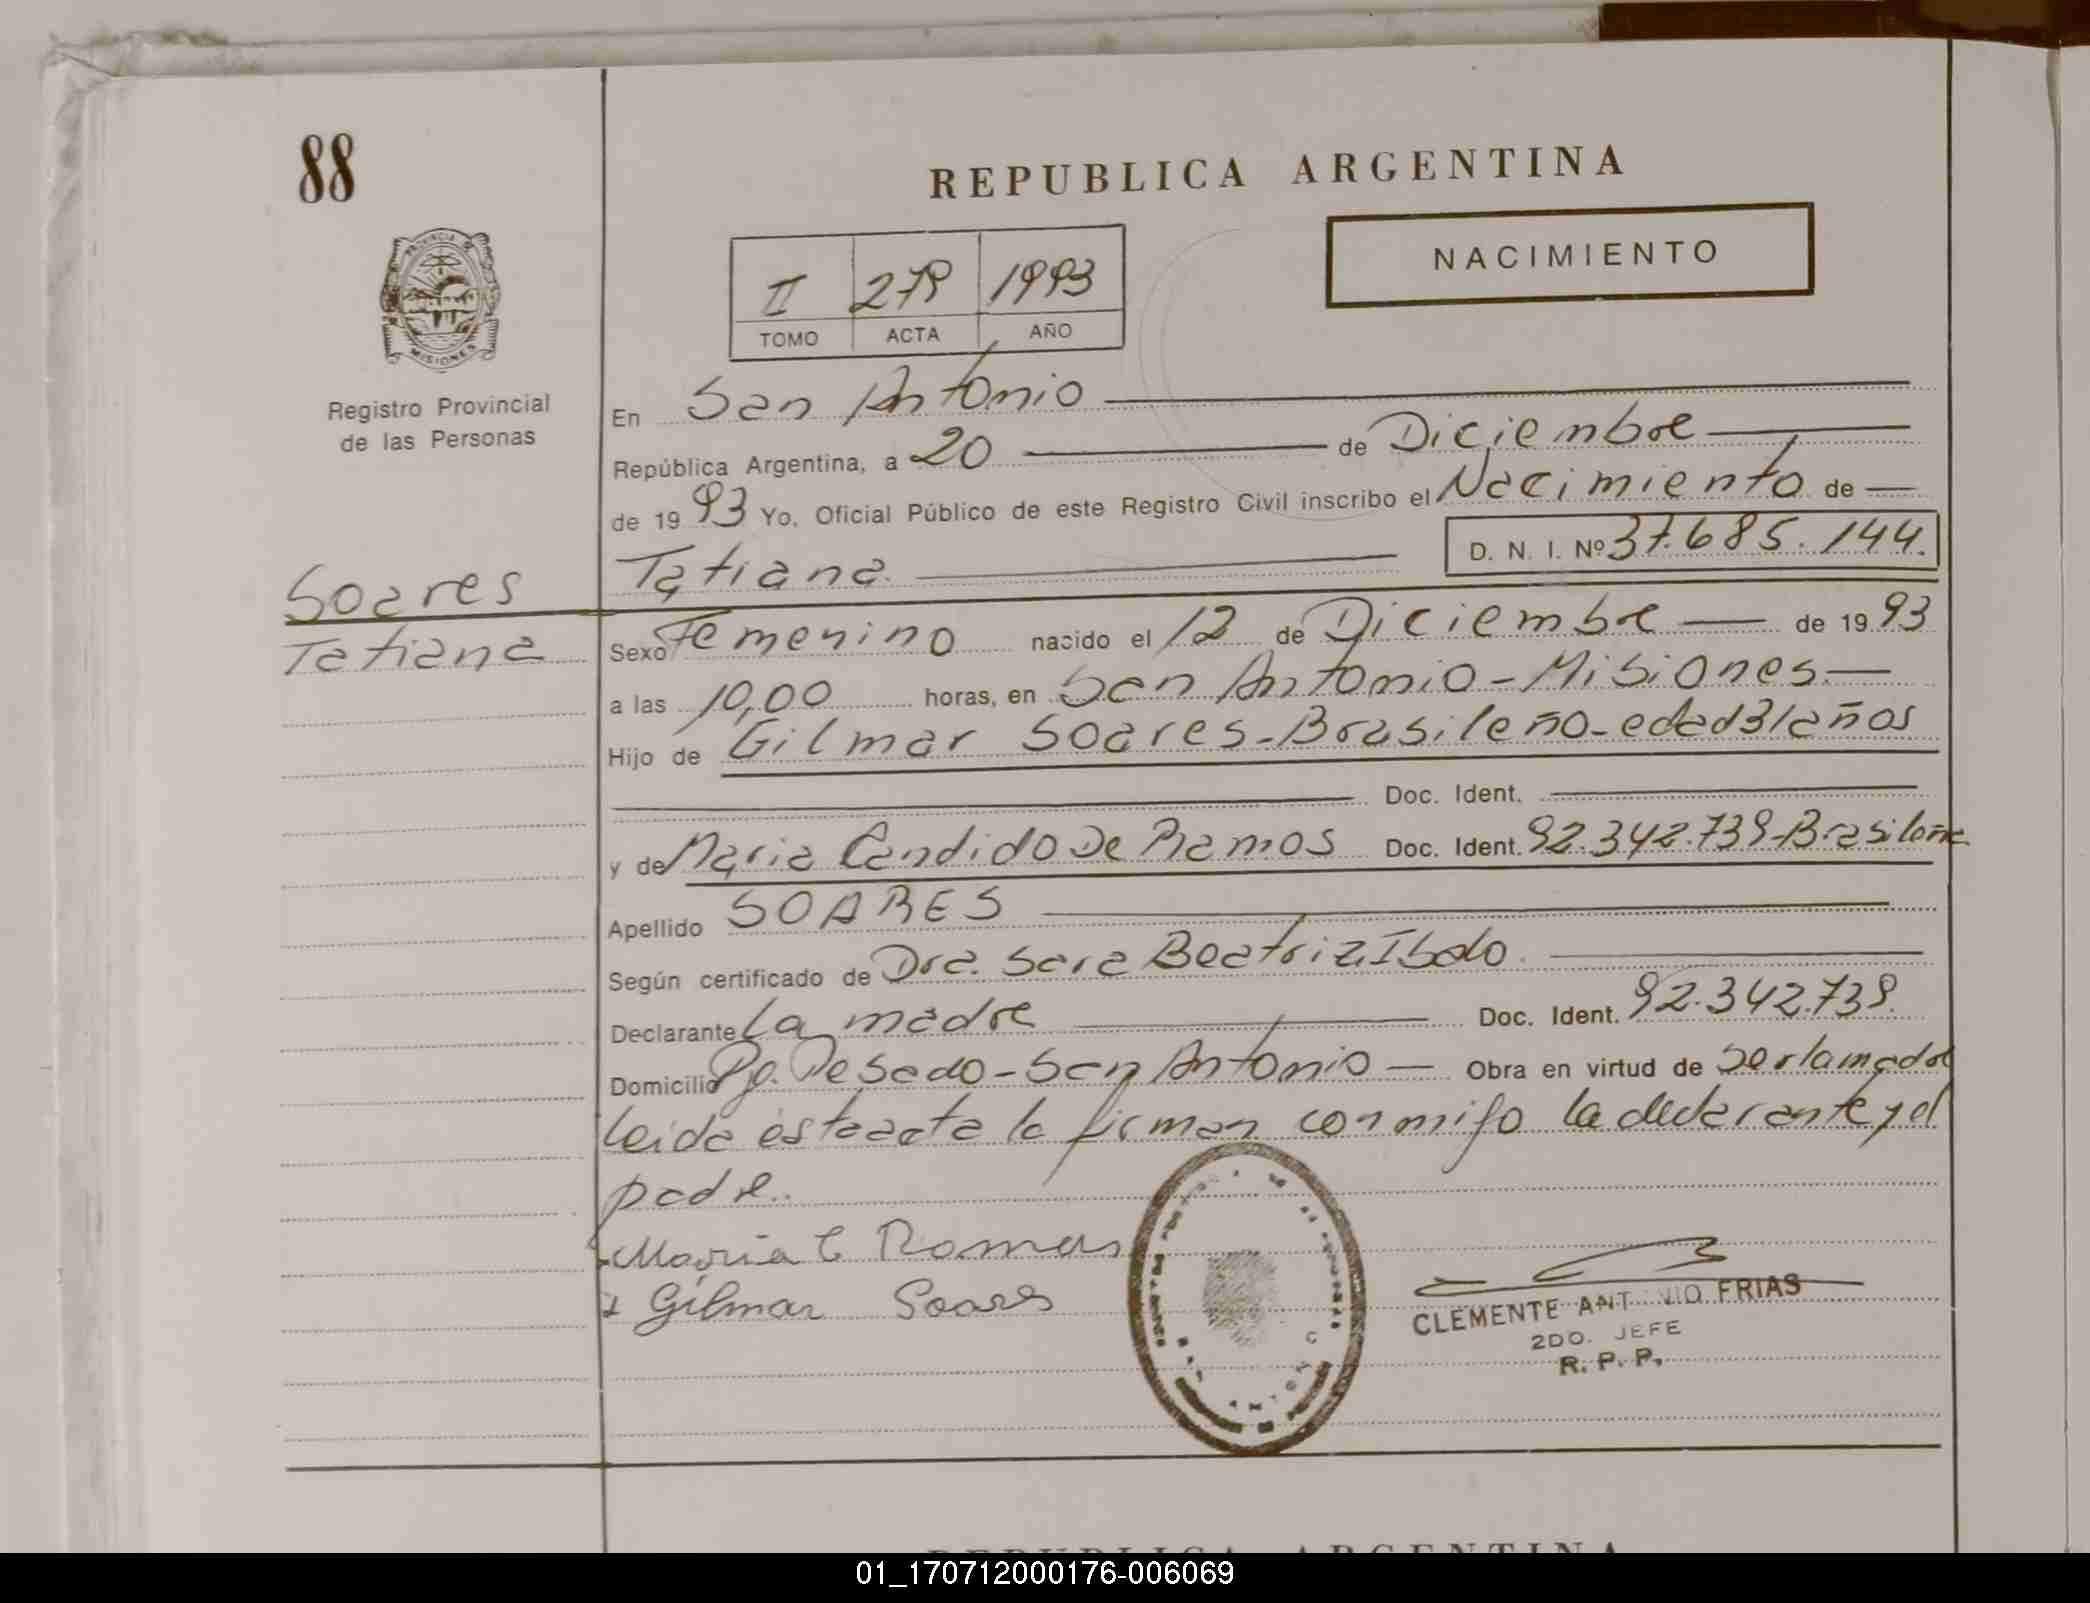 88
REPUBLICA ARGENTINA
NACIMIENTO
II 279 1993
TOMO ACTA AÑO
PROVINCIA DE MISIONES
Registro Provincial
de las Personas
En San Antonio
República Argentina, a 20 de Diciembre
de 1993 Yo, Oficial Público de este Registro Civil inscribo el Nacimiento de
Tatiana D. N. I. Nº 37.685.144.
Soares
Tatiana
Sexo Femenino nacido el 12 de Diciembre de 1993
a las 10,00 horas, en San Antonio-Misiones.
Hijo de Gilmar Soares-Brasileño-edad 31 años
Doc. Ident.
y de Maria Candido De Ramos Doc. Ident. 92.342.739-Brasileña
Apellido SOARES
Según certificado de Dra. Sara Beatriz
Declarante La madre Doc. Ident. 92.342.739.
Domicilio Pje. Desado-San Antonio Obra en virtud de ser la madre
leida esta acta la firman conmigo la declarante y el
padre.
Maria C Ramos
x Gilmar Soares
CLEMENTE ANTONIO FRIAS
2DO. JEFE
R. P. P.
REPUBLICA ARGENTINA
01_170712000176-006069